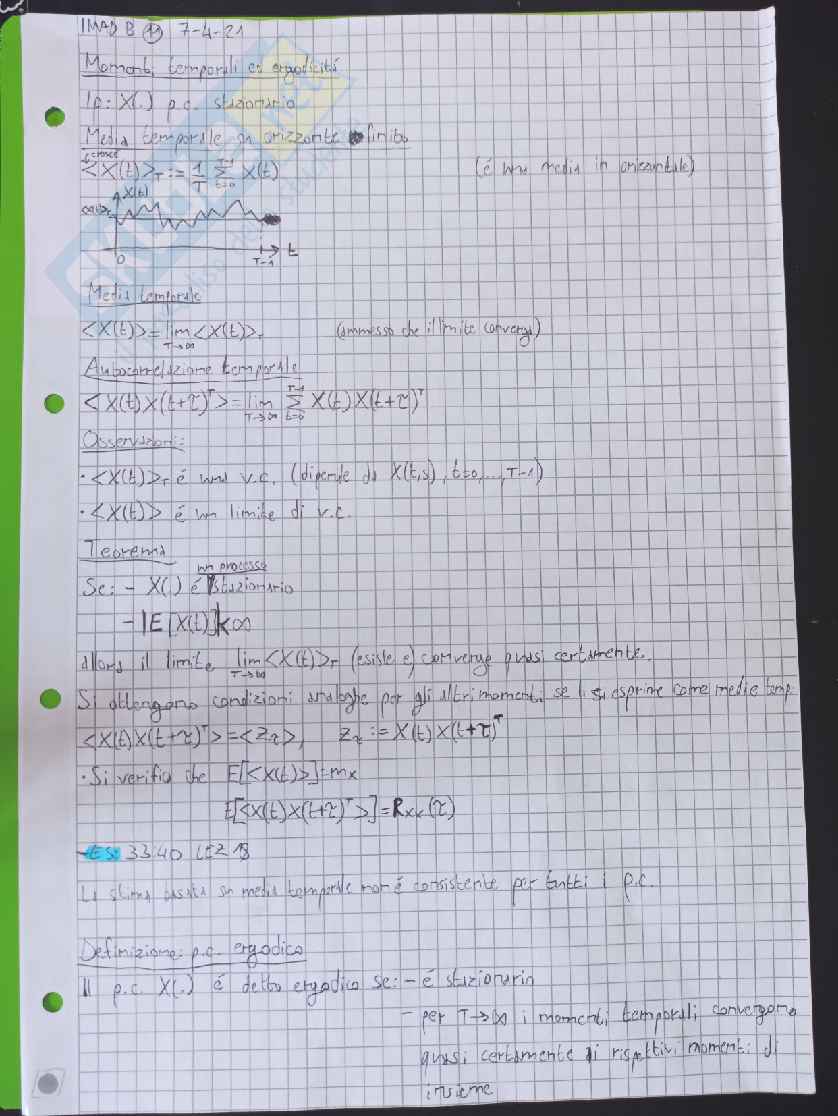 IMAD B 11 7-4-21
Momenti temporali ed ergodicità
Ip: X(.) p.c. stazionario
Media temporale su orizzonte finito
<X(t)>_T := 1/T Σ_{t=0}^{T-1} X(t) (é una media in orizzontale)
X(t)
0 T-1 t
Media temporale
<X(t)> = lim_{T→∞} <X(t)>_T (ammesso che il limite converga)
Autocorrelazione temporale
<X(t)X(t+τ)^T> = lim_{T→∞} Σ_{t=0}^{T-1} X(t)X(t+τ)^T
Osservazioni:
· <X(t)>_T é una v.c. (dipende da X(t,s), t=0,...,T-1)
· <X(t)> é un limite di v.c.
Teorema
un processo
Se: - X(.) é stazionario
- |E[X(t)]|<∞
allora il limite lim_{T→∞} <X(t)>_T (esiste e) converge quasi certamente.
Si ottengono condizioni analoghe per gli altri momenti se li si esprime come medie temp.
<X(t)X(t+τ)^T> = <Z_τ>, Z_τ := X(t)X(t+τ)^T
· Si verifica che E[<X(t)>]=m_x
E[<X(t)X(t+τ)^T>]=R_xx(τ)
-ES: 33:40 LEZ 18
La stima basata su media temporale non é consistente per tutti i p.c.
Definizione: p.c. ergodico
Il p.c. X(.) é detto ergodico se: - é stazionario
- per T→∞ i momenti temporali convergono
quasi certamente ai rispettivi momenti di
insieme